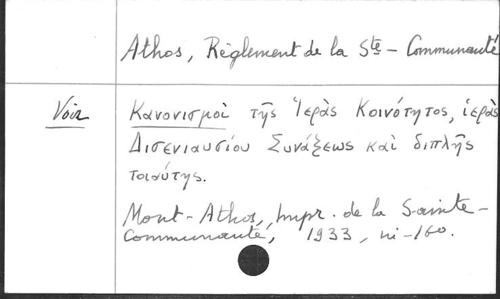 Athos, Règlement de la Ste - Communauté
Voir Κανονισμοὶ τῆς Ἱερᾶς Κοινότητος, ἱερᾶς
Δισενιαυσίου Συνάξεως καὶ διπλῆς
τοιαύτης.
Mont-Athos, Impr. de la Sainte-
Communauté, 1933, -160.